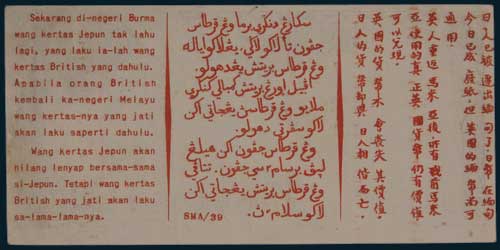 Sekarang di-negeri Burma
wang kertas Jepun tak laku
lagi, yang laku ia-lah wang
kertas British yang dahulu.
Apabila orang British
kembali ka-negeri Melayu
wang kertas-nya yang jati
akan laku saperti dahulu.
Wang kertas Jepun akan
nilang lenyap bersama-sama
si-Jepun. Tetapi wang kertas
British yang jati akan laku
sa-lama-lama-nya.
سكارڠ دنݢري برما وڠ قرطاس
جڤون تا لاكو لاݢي، يڠ لاكو اياله
وڠ قرطاس بريتش يڠ دهولو.
اڤبيل اورڠ بريتش كمبالي كنݢري
ملايو وڠ قرطاسڽ يڠ جاتي اكن
لاكو سڤرتي دهولو.
وڠ قرطاس جڤون اكن هيلڠ
لڽڤ برسام٢ سي جڤون. تتاڤي
وڠ قرطاس بريتش يڠ جاتي اكن
لاكو سلام٢ڽ.
SMA/39
日人已被逐出緬甸了。日幣在緬甸
今日已成廢紙。但英國的緬幣尚可
通用。
英人重返馬來亞後，所有戰前馬來
亞使用的真正英國貨幣仍有價值，
可以兌現。
英國的貨幣不會喪失其價值，
日人的貨幣却與日人相偕而亡。